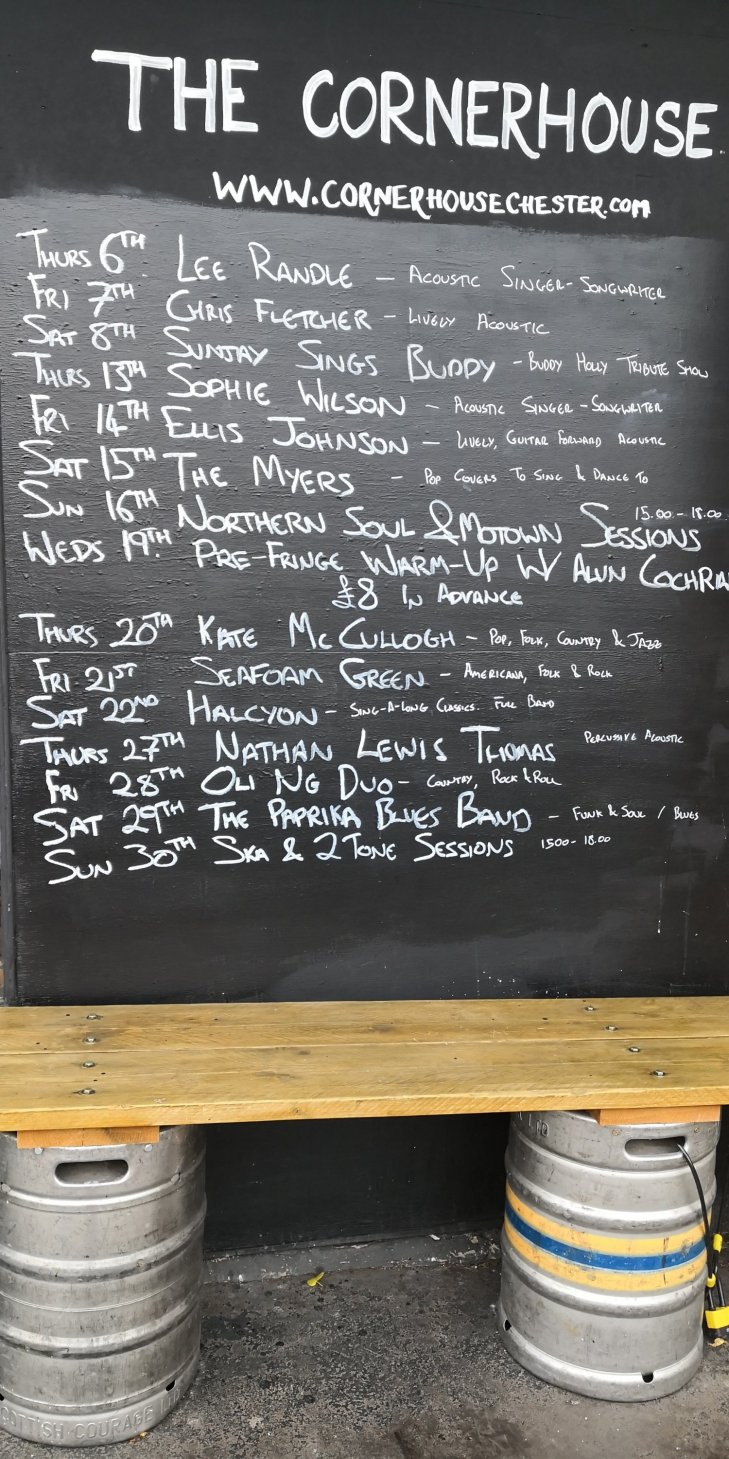 THE CORNERHOUSE
WWW.CORNERHOUSECHESTER.COM
THURS 6TH LEE RANDLE - ACOUSTIC SINGER-SONGWRITER
FRI 7TH CHRIS FLETCHER - LIVELY ACOUSTIC
SAT 8TH SUNJAY SINGS BUDDY - BUDDY HOLLY TRIBUTE SHOW
THURS 13TH SOPHIE WILSON - ACOUSTIC SINGER-SONGWRITER
FRI 14TH ELLIS JOHNSON - LIVELY, GUITAR FORWARD ACOUSTIC
SAT 15TH THE MYERS - POP COVERS TO SING & DANCE TO
SUN 16TH NORTHERN SOUL & MOTOWN SESSIONS 15.00-18.00
WEDS 19TH PRE-FRINGE WARM-UP W/ ALUN COCHRA
£8 IN ADVANCE
THURS 20TH KATE MCCULLOGH - POP, FOLK, COUNTRY & JAZZ
FRI 21ST SEAFOAM GREEN - AMERICANA, FOLK & ROCK
SAT 22ND HALCYON - SING-A-LONG CLASSICS. FULL BAND
THURS 27TH NATHAN LEWIS THOMAS PERCUSSIVE ACOUSTIC
FRI 28TH OLI NG DUO - COUNTRY, ROCK & ROLL
SAT 29TH THE PAPRIKA BLUES BAND - FUNK & SOUL / BLUES
SUN 30TH SKA & 2 TONE SESSIONS 1500-18.00
SCOTTISH-COURAGE LTD